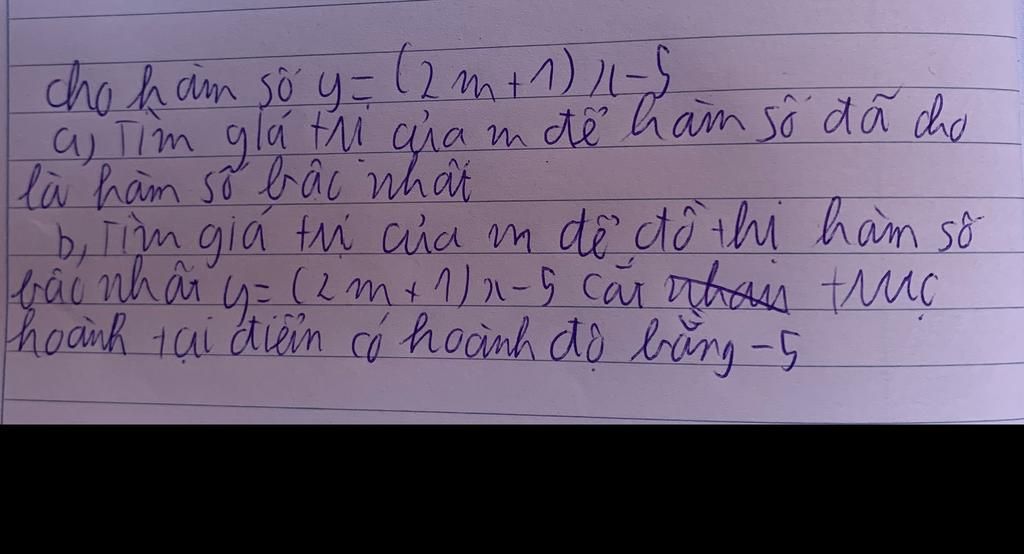 cho hàm số y = (2m+1)x-5
a, Tìm giá trị của m để hàm số đã cho
là hàm số bậc nhất
b, Tìm giá trị của m để đồ thị hàm số
bậc nhất y = (2m+1)x-5 cắt trục
hoành tại điểm có hoành độ bằng -5